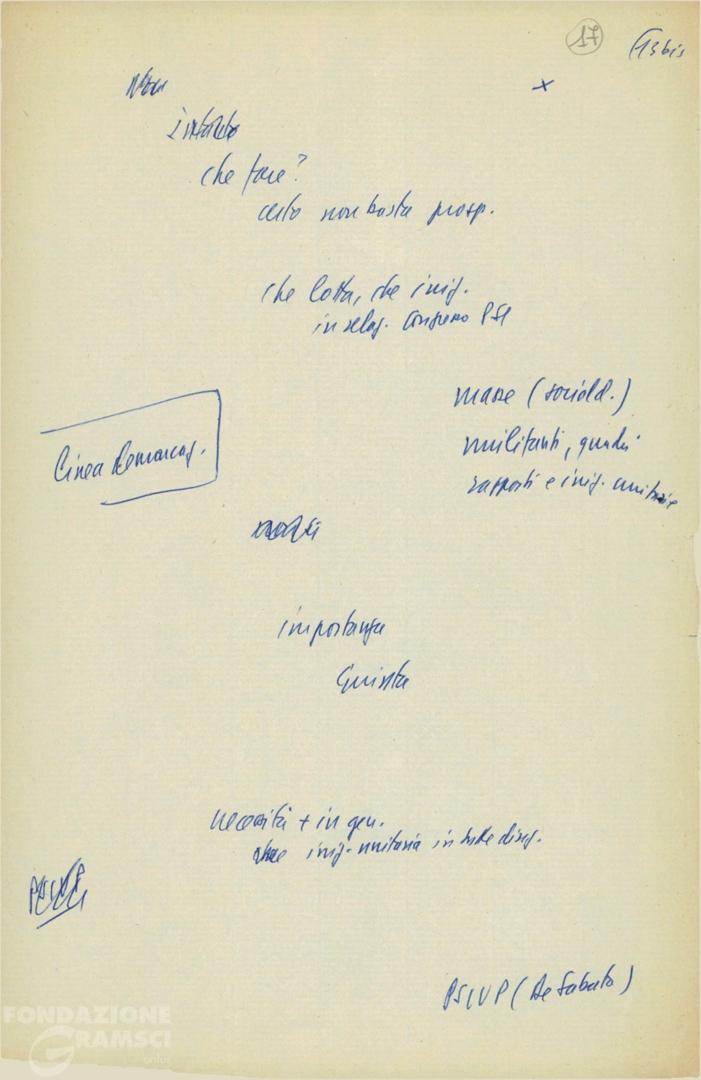 17
13 bis
Noi
+
intanto
che fare?
certo non basta prosp.
che lotta, che iniz.
in relaz. Congresso PSI
masse (sociald.)
militanti, quadri
rapporti e iniz. unitarie
Linea Demarcaz.
importanza
Giusta
necessità + in gen.
iniz. unitaria in tutte direz.
PSIUP (De Sabato)
FONDAZIONE
GRAMSCI
onlus